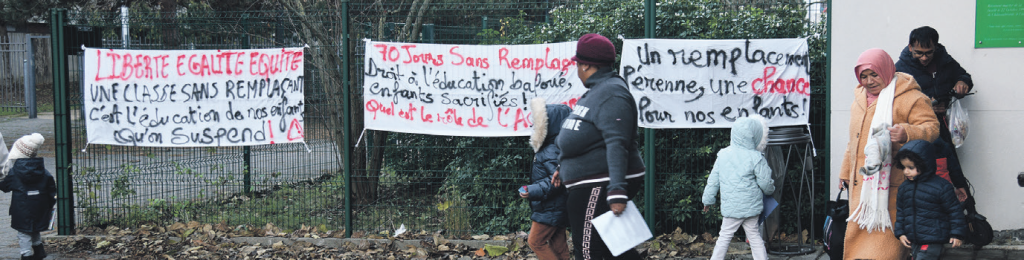 LIBERTE EGALITE EQUITE
UNE CLASSE SANS REMPLAÇANT
c'est l'éducation de nos enfants
qu'on suspend !
70 Jours Sans Remplaça
Droit à l'éducation bafoué,
enfants sacrifiés !
Quel est le rôle de l'A
Un remplacement
pérenne, une chance
Pour nos enfants !